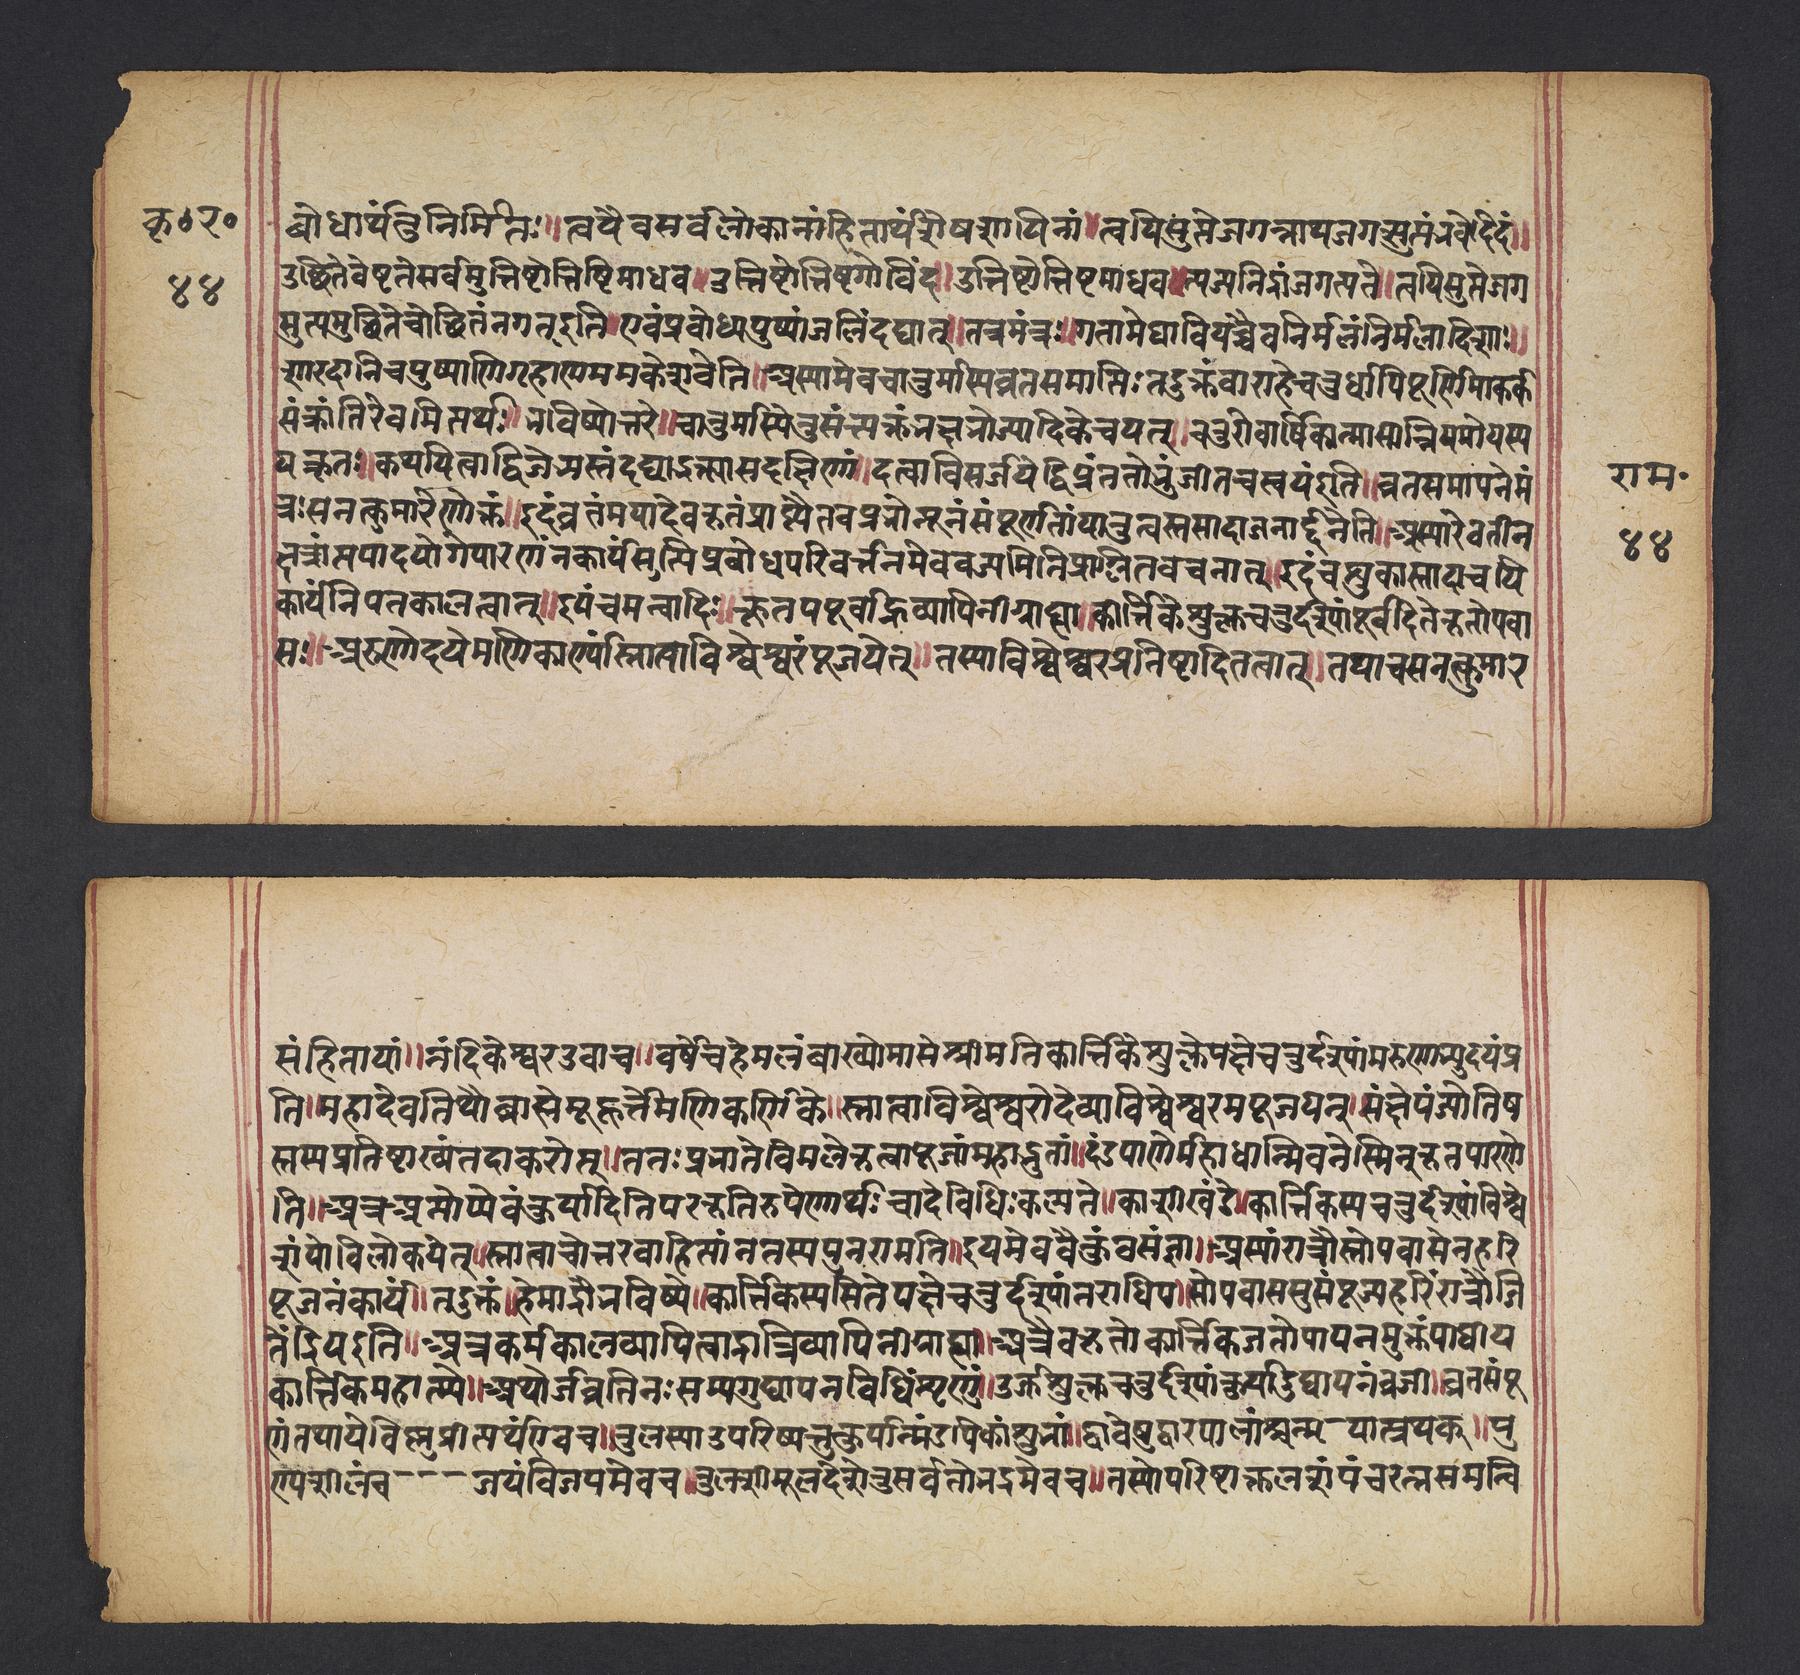 कृ॰र॰
४४
बोधार्थंतुनिर्मितः॥त्वयैवसर्वलोकानांहितार्थंशेषशायिनां॥त्वयिसुप्तेजगन्नाथजगत्सुप्तंभवेदिदं॥
उछितेचेष्टतेसर्वमुत्तिष्टोत्तिष्टिमाधव॥उत्तिष्टोत्तिष्टगोविंद॥उत्तिष्टोत्तिष्टमाधव॥त्यजनिद्रांजगत्पते॥त्वयिसुप्तेजग
त्सुप्तमुछितेचोछितंजगत्इति॥एवंप्रबोध्यपुष्पांजलिंदद्यात्॥तत्रमंत्रः॥गतामेघावियच्चैवनिर्मलंनिर्मलादिशः॥
शारदानिचपुष्पाणिगृहाणममकेशवेति॥अस्यामेवचातुर्मास्यव्रतसमाप्तिःतदुक्तंवाराहेचतुर्धापिपूर्णिमाकर्क
संक्रांतिरेवमित्यर्थः॥भविष्योत्तरे॥चातुर्मास्येतुसंत्यक्तंभक्षभोज्यादिकेचयत्॥चतुरोवार्षिकान्मासान्नियमोयस्य
यत्कृतः॥कथयित्वाद्विजेभ्यस्तंदद्याद्भक्त्यासदक्षिणां॥दत्वाविसर्जयेद्विप्रंततोभुंजीतचस्वयंइति॥व्रतसमापनेमं
त्रःसनत्कुमारेणोक्तं॥इदंव्रतंमयादेवकृतंप्रीत्यैतवप्रभोन्यूनंसंपूर्णतांयातुत्वत्प्रसादाज्जनार्द्दनेति॥अस्यारेवतीन
क्षत्रांत्यपादयोगेपारणंनकार्यंसुप्तिप्रबोधपरिवर्त्तनमेववर्ज्यमितिप्रागुक्षितवचनात्॥इदंचशुक्रास्तादावपि
कार्यंनियतकालत्वात्॥इयंचमन्वादिः॥कृतपपूर्वाह्निव्यापिनीग्राह्या॥कार्त्तिकेशुक्लचतुर्दश्यांपूर्वदिनेकृतोपवा
सः॥अरुणोदयेमणिकर्ण्यांस्नात्वाविश्वेश्वरंपूजयेत्॥तस्याविश्वेश्वरप्रतिष्टादितत्वात्॥तथाचसनत्कुमार
राम॰
४४
संहितायां॥नंदिकेश्वरउवाच॥वर्षेचहेमलंबाख्योमासेश्रीमतिकार्त्तिके शुक्लेपक्षेचतुर्दश्यांमरुणाभ्युदयंप्र
ति॥महादेवतिथौब्राह्मेमूहूर्त्तेमणिकर्णिके॥स्नात्वाविश्वेश्वरोदेव्याविश्वेश्वरमपूजयत्॥संक्षेपंज्योतिष
स्तस्यप्रतिष्टाख्यंतदाकरोत्॥ततःप्रभातेविमलेकृत्वापूजांमहाद्भुतां॥दंडपाणेर्महाधाम्निवनेस्मिन्कृतपारणे
ति॥अत्रअमोप्येवंकुर्यादितिपरकृतिरुपेणार्थःचादेविधिःकल्पते॥काशीखंडे॥कार्त्तिकस्यचतुर्दश्यांविश्वे
शंयोविलोकयेत्॥स्नात्वाचोत्तरवाहिन्यांनतस्यपुनरागति॥इयमेववैकुंठसंज्ञा॥अस्यांरात्रौसोपवासेनहरि
पूजनंकार्यं॥तदुक्तं॥हेमाद्रौभविष्ये॥कार्त्तिकस्यसितेपक्षेचतुर्दश्यांनराधिप॥सोपवाससुसंपूज्यहरिंरात्रौजि
तेंद्रियइति॥अत्रकर्मकालव्यापित्वाद्रात्रिव्यापिनीग्राह्या॥अत्रैवरुतोकार्त्तिकव्रतोपापनमुक्तंपाद्मीय
कार्त्तिकमहात्म्ये॥अथोर्जव्रतिनःसम्यगुद्यापनविधिंश्रृणु॥उर्जशुक्लचतुर्दश्यांकुर्यादुद्यापनंव्रजी॥व्रतसंपू
र्णतथार्थेविष्णुप्रीत्यर्थमेवच॥तुलस्याउपरिष्टात्तुकुर्यान्मंडपिकांशुभां॥द्वारेषुद्वारपालांश्चन्म-यात्पृथक्॥पु
ण्यशीलंच---जयंविजयमेवच॥तुलसीमूलदेशेतुसर्वतोभद्रमेवच॥तस्योपरिष्टात्कलशंपंचरत्नसमन्वि